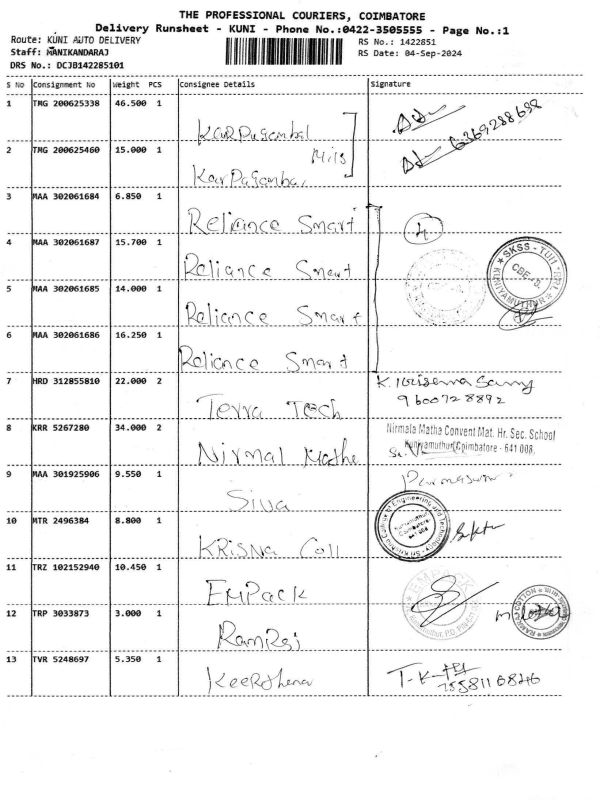 THE PROFESSIONAL COURIERS, COIMBATORE
Delivery Runsheet - KUNI - Phone No.:0422-3505555 - Page No.:1
Route: KUNI AUTO DELIVERY
RS No.: 1422851
Staff: MANIKANDARAJ
RS Date: 04-Sep-2024
DRS No.: DCJB142285101
S No Consignment No Weight PCS Consignee Details Signature
1 TMG 200625338 46.500 1
KarPagambal
6369288698
2 TMG 200625460 15.000 1
Mills
KarPagambal
3 MAA 302061684 6.850 1
Reliance Smart
4
4 MAA 302061687 15.700 1
Reliance Smart
SKSS - TUII
KUNIYAMUTHUR
CBE-8.
5 MAA 302061685 14.000 1
Reliance Smart
6 MAA 302061686 16.250 1
Reliance Smart
7 HRD 312855810 22.000 2
Terra Tech
9600728892
8 KRR 5267280 34.000 2
Nirmal Mathe
Nirmala Matha Convent Mat. Hr. Sec. School
Kuniyamuthur, Coimbatore - 641 008.
9 MAA 301925906 9.550 1
Siva
10 MTR 2496384 8.800 1
KRISNA Coll
Sri Krishna College of Engineering and Technology
Kuniyamuthur
Coimbatore
641 008
11 TRZ 102152940 10.450 1
EMPack
EMPACK
12 TRP 3033873 3.000 1
Ramraj
RAMRAJ COTTON
13 TVR 5248697 5.350 1
Keerthena
T-K
7558116846